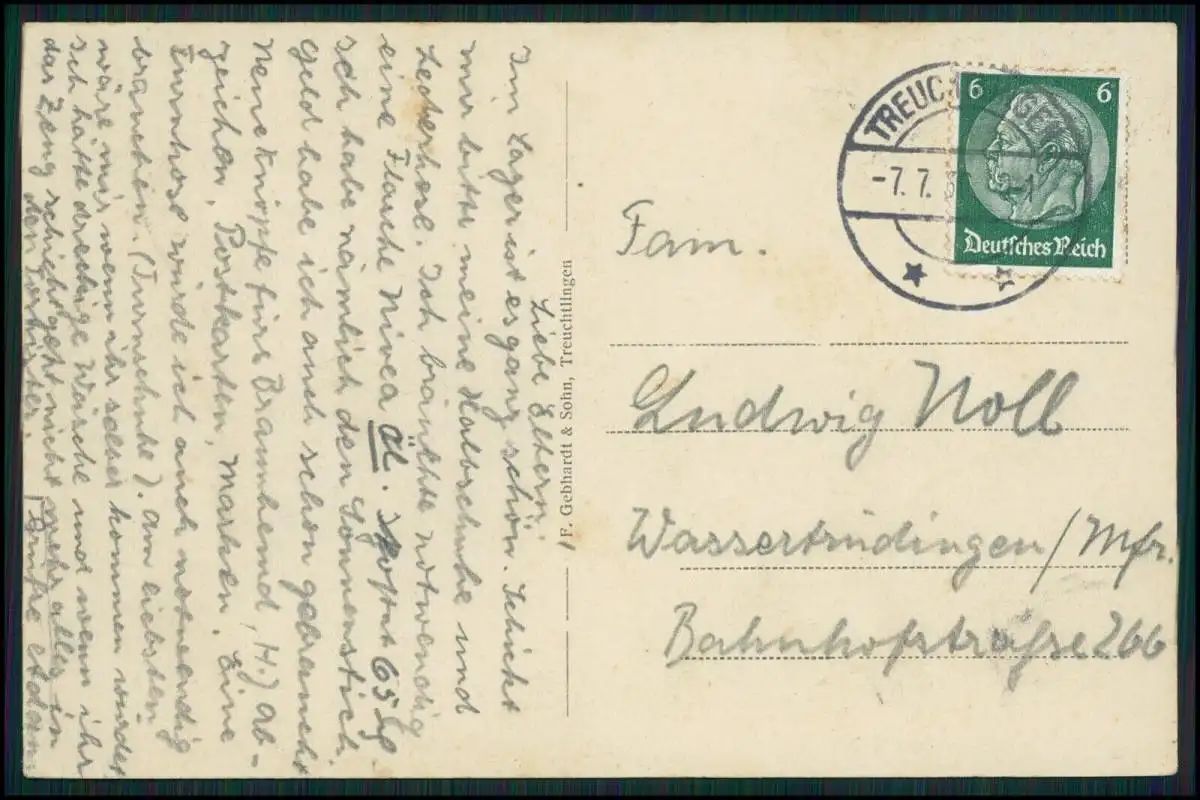 Liebe Eltern!
Im Lager ist es ganz schön. Schickt
mir bitte meine Halbschuhe und
Lederhose. Ich bräuchte notwendig
eine Flasche Nivea Öl. Kostet 65 Pf.
Ich habe nämlich den Sonnenstich.
Geld habe ich auch schon gebraucht
Neue Knöpfe fürs Braunhemd, HJ ab-
zeichen, Postkarten, Marken. Eine
Turnhose würde ich auch notwendig
brauchen. (Turnschuhe). Am liebsten
wäre mir wenn ihr selber kommen würdet
Ich hätte dreckige Wäsche und wenn ihr
das Zeug schickt geht nicht mehr alles in
den Tornister. Grüße
F. Gebhardt & Sohn, Treuchtlingen
TREUCHTLINGEN
-7.7.
6 6
Deutsches Reich
Fam.
Ludwig Noll
Wassertrüdingen/Mfr.
Bahnhofstraße 266